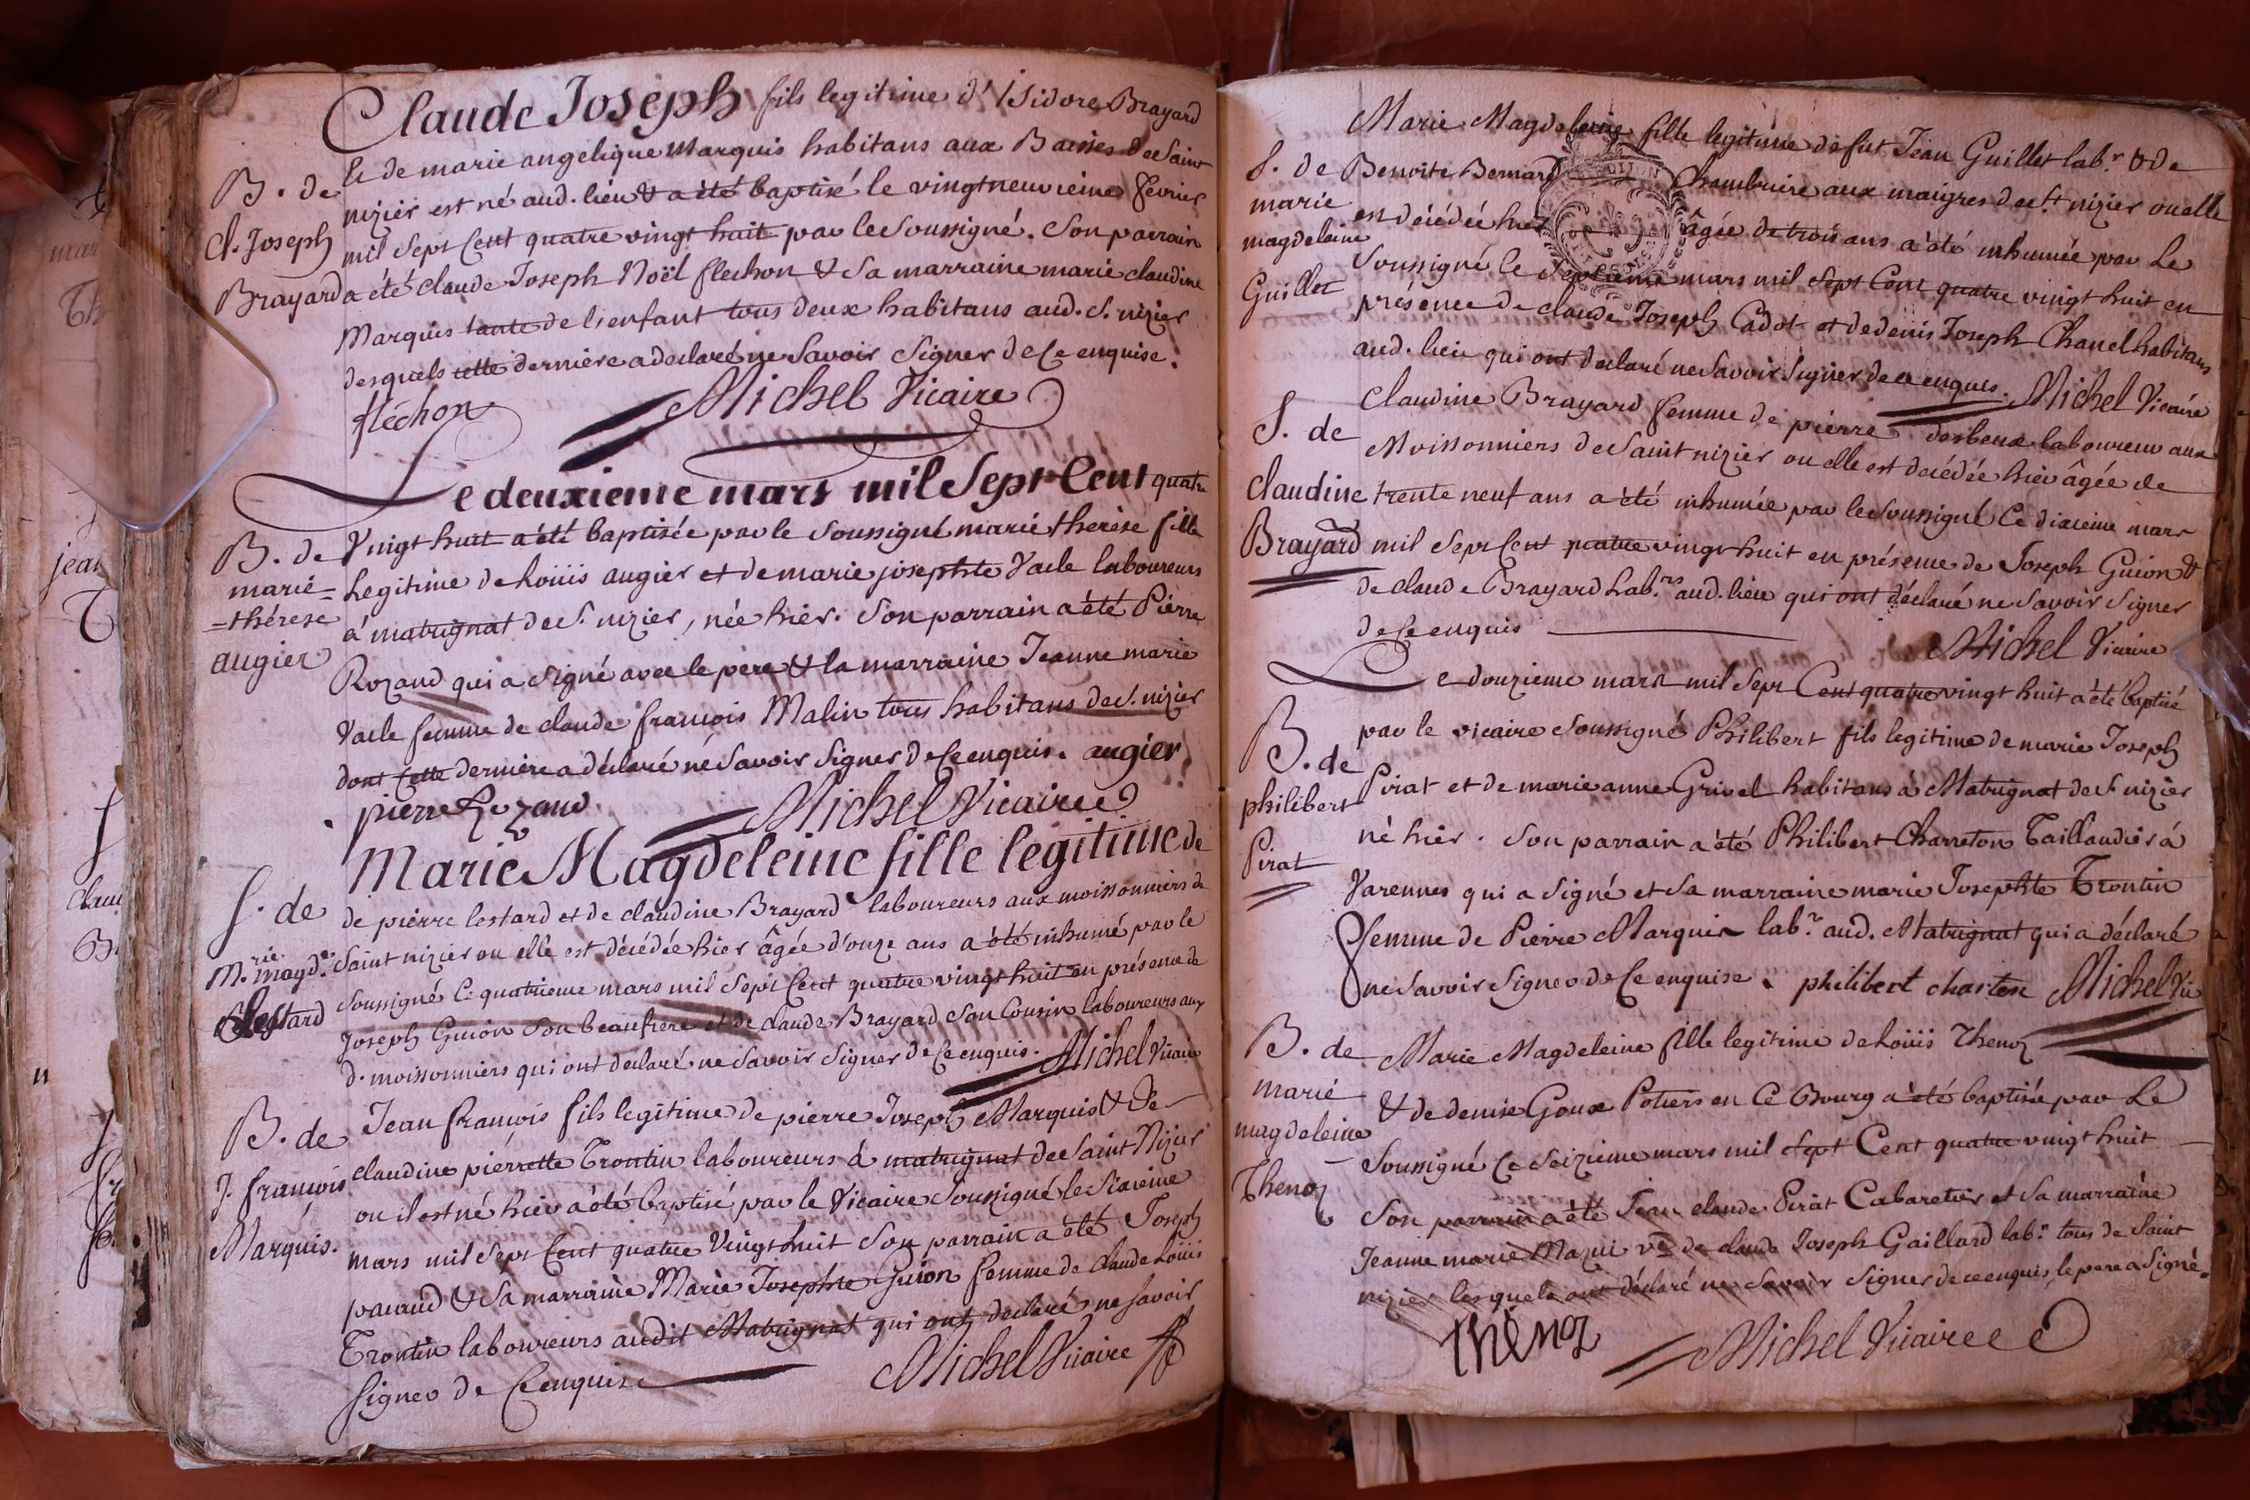 Claude Joseph fils legitime d'isidore Brayard
B. de
Cl. Joseph
Brayard
& de marie angelique Marquis habitans aux Basses de Saint
nizier est né aud. lieu & a été baptisé le vingtneuvieme fevrier
mil sept Cent quatre vingt huit par le soussigné. son parrain
a été claude Joseph Noël flechon & sa marraine marie claudine
Marquis tante de l'enfant tous deux habitans aud. S. nizier
desquels cette derniere a declaré ne savoir signer de Ce enquise.
fléchon Michel Vicaire
Le deuxieme mars mil Sept Cent quatre
B. de
marie=
=thérese
augier
Vingt huit a été baptisée par le soussigné marie therese fille
Legitime de Loüis augier et de marie josephte Vacle laboureurs
à matrignat de S. nizier, née hier. Son parrain a été Pierre
Rozand qui a signé avec le pere & la marraine Jeanne marie
Vacle femme de claude françois Malin tous habitans de S. nizier
dont Cette derniere a déclaré ne savoir signer de Ce enquise. augier
pierre Rozand Michel Vicaire
Marie Magdeleine fille legitime de
S. de
M.rie magd.e
Lestard
de pierre lestard et de claudine Brayard laboureurs aux moissonniers de
Saint nizier ou elle est décédée hier âgée d'onze ans a été inhumé par le
soussigné Ce quatrieme mars mil sept Cent quatre vingt huit en présence de
Joseph Guion son beaufrere et de claude Brayard son Cousin laboureurs aux
d. moissonniers qui ont declaré ne savoir signer de Ce enquis. Michel Vicaire
B. de
J. françois
Marquis.
Jean françois fils legitime de pierre Joseph Marquis & de
claudine pierrette Trontin laboureurs à matrignat de Saint Nizier
ou il est né hier a été baptisé par le Vicaire soussigné le sixieme
mars mil sept Cent quatre Vingt huit son parrain a été Joseph
pacaud & sa marraine Marie Josephte Guion femme de claude Loüis
Trontin laboureurs audit Matrignat qui ont declaré ne savoir
signer de Ce enquis Michel Vicaire
Marie Magdeleine fille legitime de fut Jean Guillet lab.r & de
S. de
marie
magdeleine
Guillet
Benoite Bernard Chambrire aux maigres de S.t nizier ou elle
est décédée hier âgée de trois ans a été inhumée par Le
Soussigné le septieme mars mil sept Cent quatre vingt huit en
présence de claude Joseph Cadot et de denis Joseph Chanel habitans
aud. lieu qui ont declaré ne savoir signer de ce enquis. Michel Vicaire
S. de
claudine
Brayard
Claudine Brayard femme de pierre desbeux laboureur aux
Moissonniers de Saint nizier ou elle est decédée hier âgée de
trente neuf ans a été inhumée par le soussigné Ce dixieme mars
mil sept Cent quatre vingt huit en présence de Joseph Guion &
de claude Brayard Lab.rs aud. lieu qui ont déclaré ne savoir signer
de Ce enquis
Michel Vicaire
Le douzieme mars mil sept Cent quatre vingt huit a été baptisé
B. de
philibert
Pirat
par le vicaire soussigné Philibert fils legitime de marie Joseph
Pirat et de marie anne Grivel habitans à Matrignat de S. nizier
né hier. son parrain a été Philibert Charreton Taillandier à
Varennes qui a signé et sa marraine marie Josephte Trontin
femme de Pierre Marquis lab.r aud. Matrignat qui a déclaré
ne savoir signer de Ce enquise. philibert charton Michel Vic
B. de
marie
magdeleine
Thenoz
Marie Magdeleine fille legitime de Loüis Thenoz
& de denise Goux Potiers en Ce Bourg a été baptisée par Le
Soussigné Ce seizieme mars mil sept Cent quatre vingt huit
son parrain a été Jean claude Pirat Cabaretier et sa marraine
Jeanne marie Mazui v.e de claude Joseph Gaillard lab.r tous de Saint
nizier lesquels ont déclaré ne savoir signer de ce enquis, le pere a signé.
thénoz Michel Vicaire